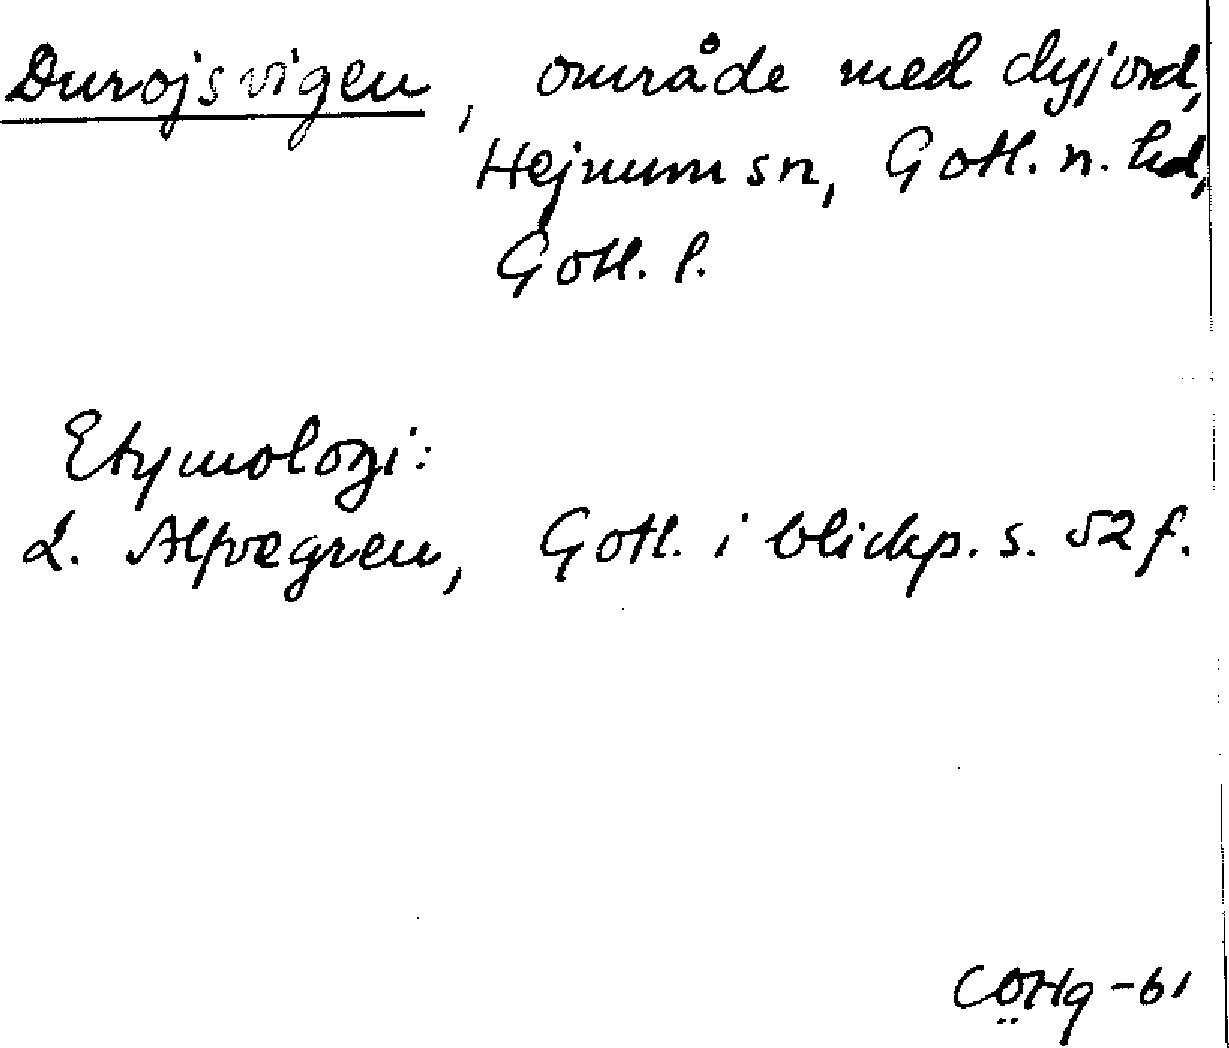 Durojsvigen, område med dyjord,
Hejnum sn, Gotl. n. hd,
Gotl. l.
Etymologi:
L. Alfvegren, Gotl. i blickp. s. 52 f.